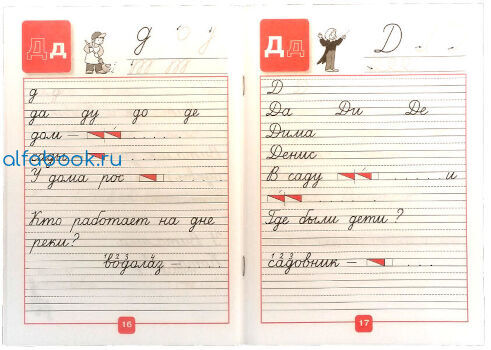 Дд
д
д
да ду до де
дом –
сады –
У дома рос
Кто работает на дне
реки?
водолаз –
16
Дд
Д
Д
Да Ди Де
Дима
Денис
В саду и
Где были дети ?
садовник –
17
alfabook.ru